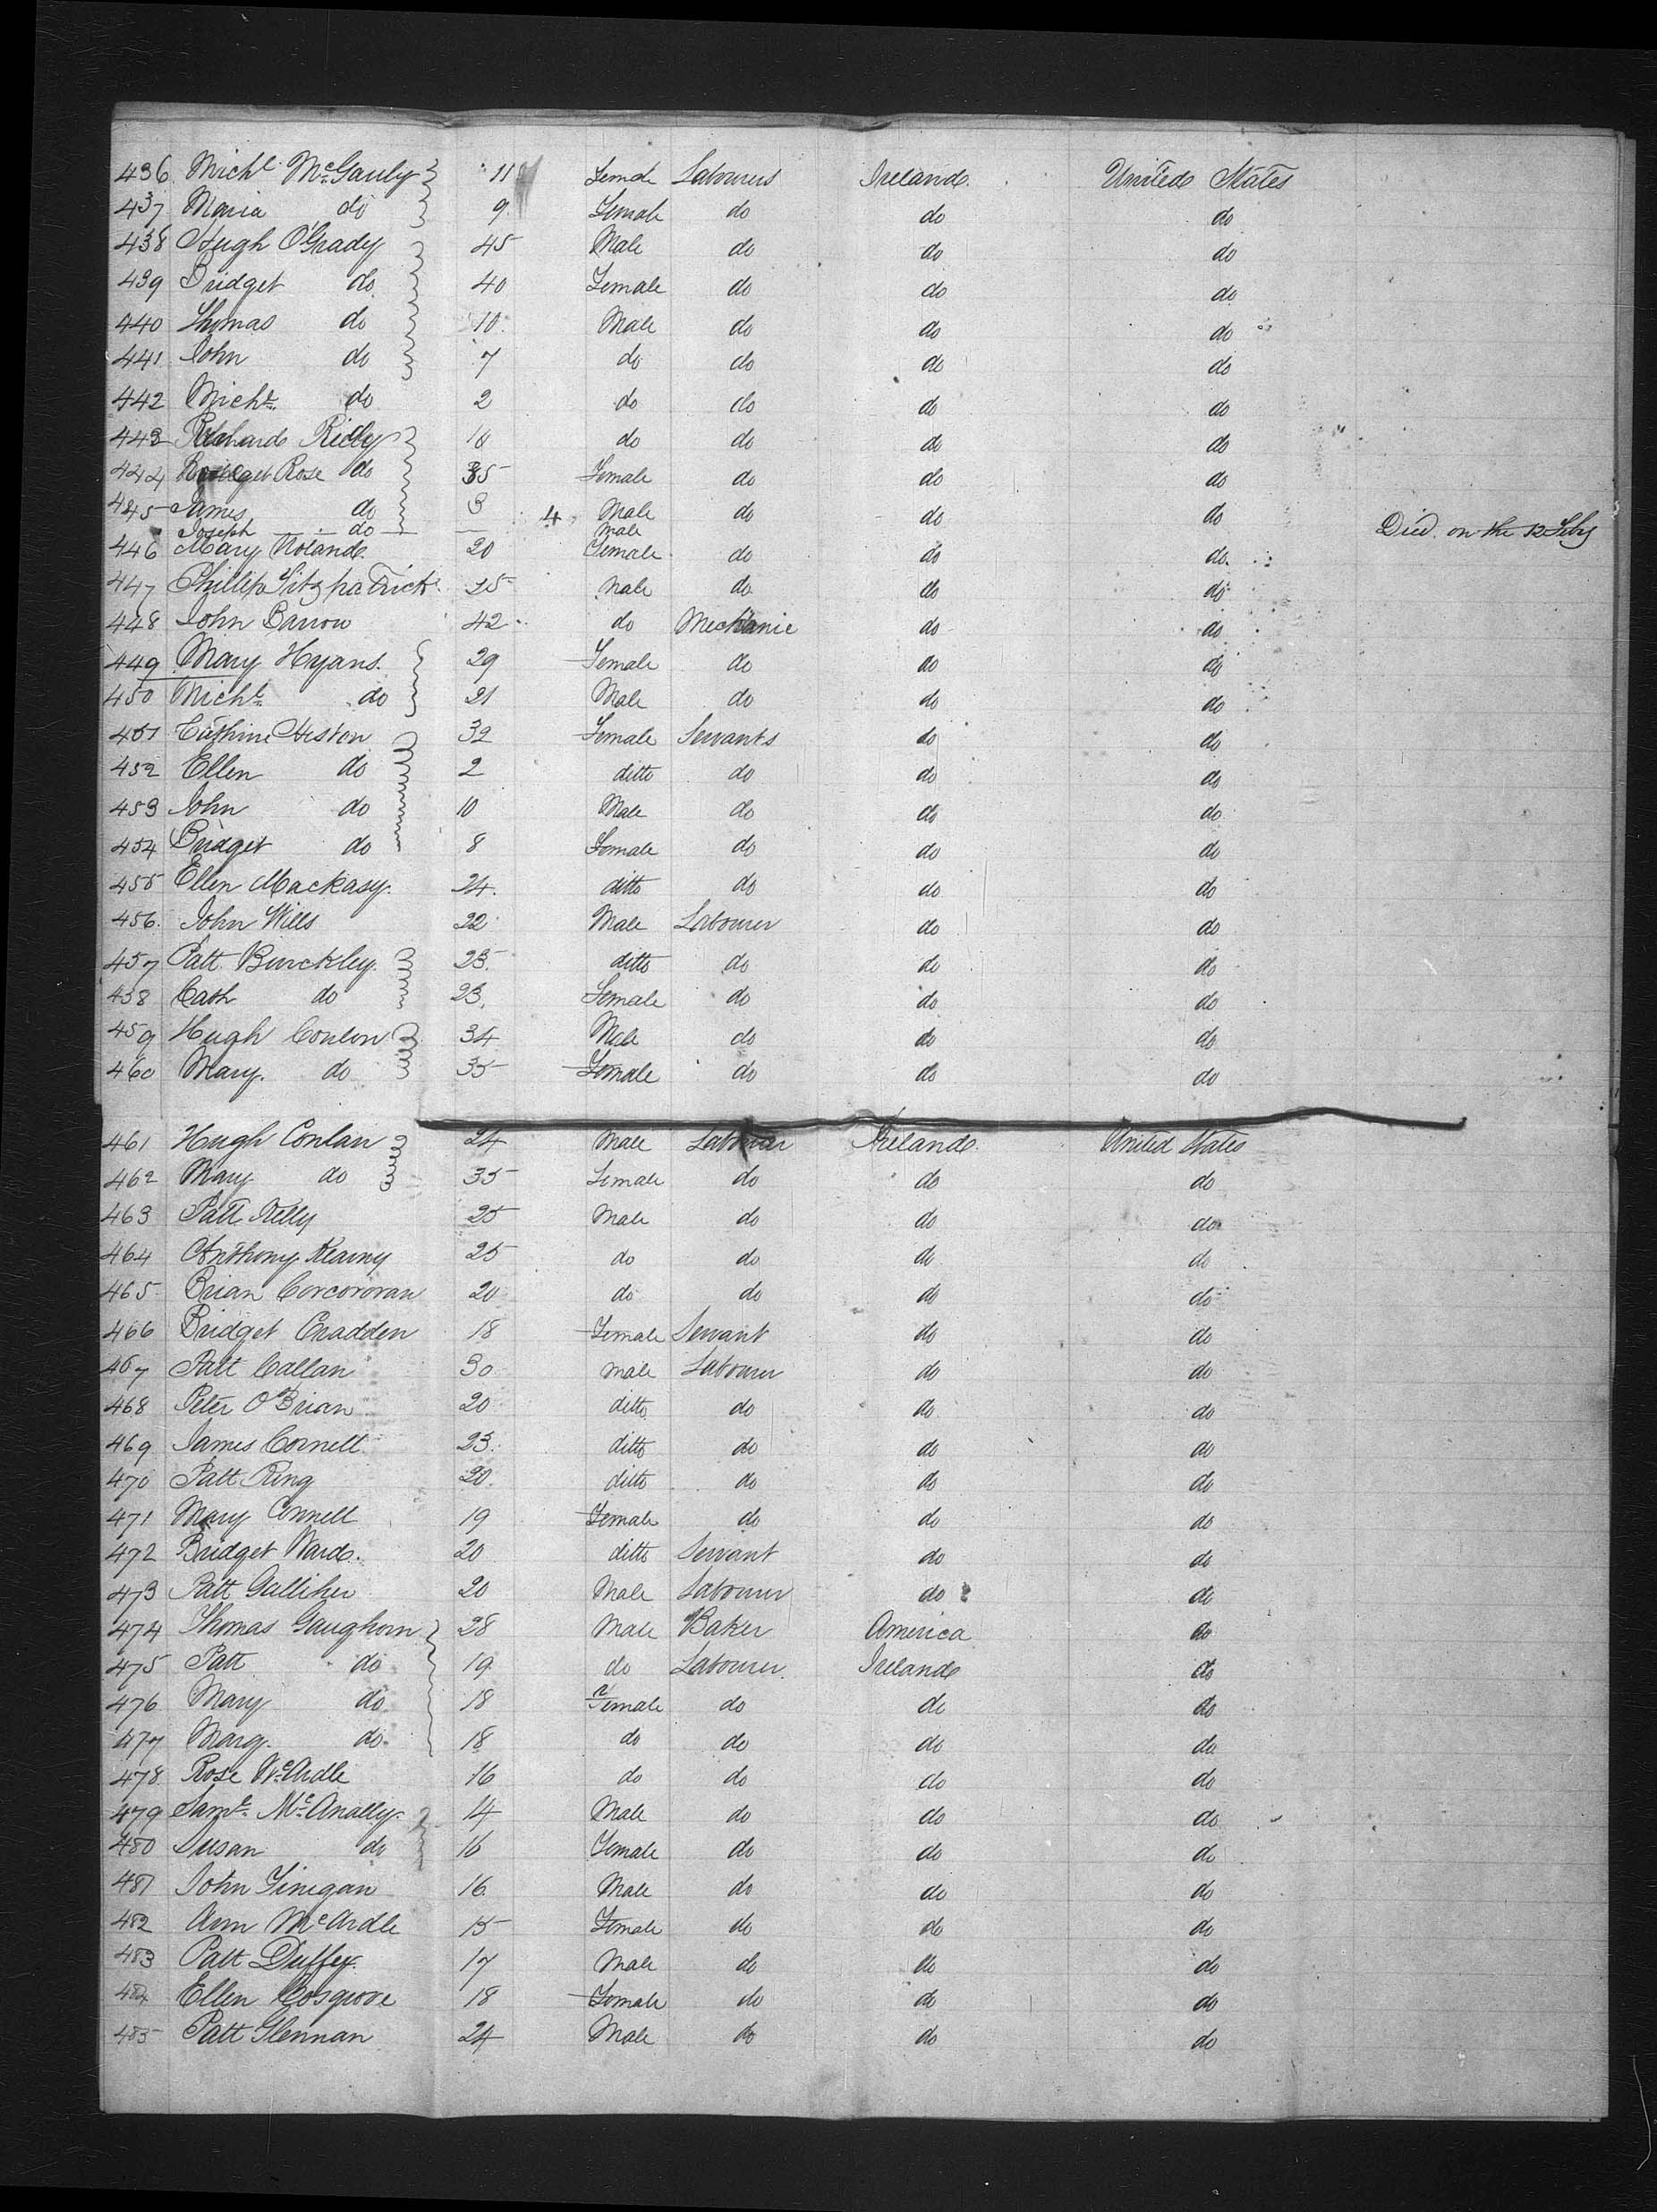 436 Michl McGauly 11 Female Labourers Ireland United States
437 Maria do 9 Female do do do
438 Hugh O'Grady 45 Male do do do
439 Bridget do 40 Female do do do
440 Thomas do 10 Male do do do
441 John do 7 do do do do
442 Michl do 2 do do do do
443 Richard Reilly 10 do do do do
444 Rose do 35 Female do do do
445 James do 3 Male do do do
Joseph do 4 Male Died on the 12 Feby
446 Mary Noland 20 Female do do do
447 Phillip Fitzpatrick 25 Male do do do
448 John Barrow 42 do Mechanic do do
449 Mary Hyans 29 Female do do do
450 Michl do 21 Male do do do
451 Cathrine Heston 32 Female Servants do do
452 Ellen do 2 ditto do do do
453 John do 10 Male do do do
454 Bridget do 8 Female do do do
455 Ellen Mackasy 24 ditto do do do
456 John Wills 22 Male Labourer do do
457 Patt Burckley 23 ditto do do do
458 Cath do 23 Female do do do
459 Hugh Conlon 34 Male do do do
460 Mary do 35 Female do do do
461 Hugh Conlan 24 Male Labourer Ireland United States
462 Mary do 35 Female do do do
463 Patt Kelly 25 Male do do do
464 Anthony Kearny 25 do do do do
465 Brian Corcororan 20 do do do do
466 Bridget Cradden 18 Female Servant do do
467 Patt Callan 30 Male Labourer do do
468 Peter O'Brian 20 ditto do do do
469 James Cornell 23 ditto do do do
470 Patt Ring 20 ditto do do do
471 Mary Connell 19 Female do do do
472 Bridget Ward 20 ditto Servant do do
473 Patt Galliher 20 Male Labourer do do
474 Thomas Gaughorn 28 Male Baker America do
475 Patt do 19 do Labourer Ireland do
476 Mary do 18 Female do do do
477 Marg. do 18 do do do do
478 Rose McArdle 16 do do do do
479 Saml McAnally 14 Male do do do
480 Susan do 16 Female do do do
481 John Finigan 16 Male do do do
482 Ann McArdle 15 Female do do do
483 Patt Duffey 17 Male do do do
484 Ellen Cosgrove 18 Female do do do
485 Patt Glennan 24 Male do do do